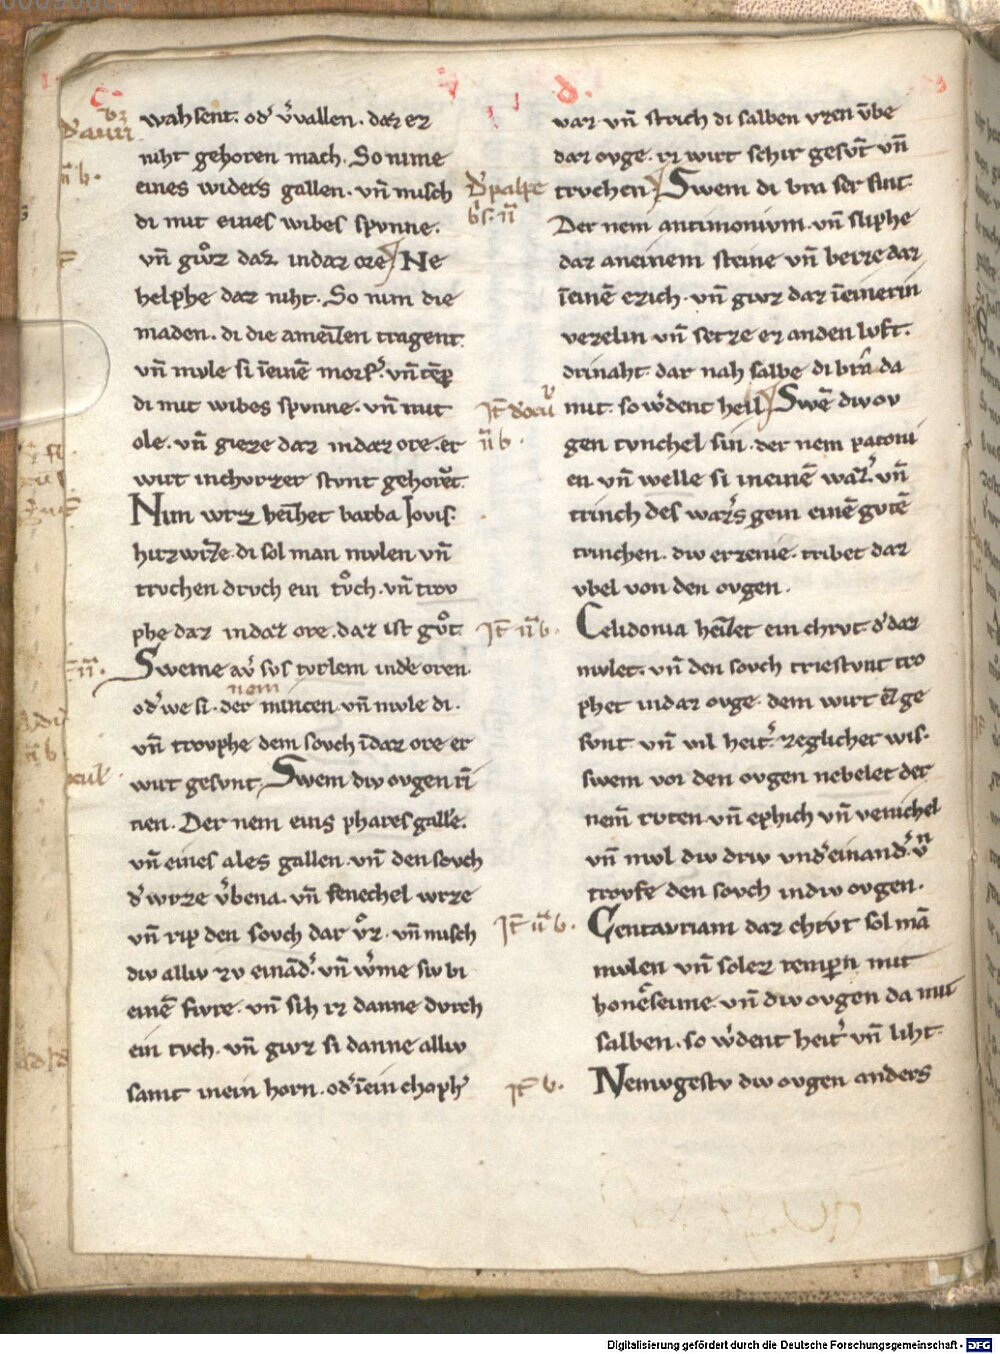 c.
d.
wahsent. od͛ v͛vallen. daz ez
niht gehoren mach. So nime
eines widers gallen. vn̄ misch
di mit eines wibes spvnne.
vn̄ givͦz daz indaz ore. Ne
helphe daz niht. So nim die
maden. di die ameizen tragent.
vn̄ mvle si īeinē mors͛. vn̄ tēp͛
di mit wibes spvnne. vn̄ mit
ole. vn̄ gieze daz indaz ore. er
wirt inchvrzer stvnt gehoret.
Nim wrz heizhet barba Iovis.
hvzwrze. di sol man mvlen vn̄
trvchen dvrch ein tvͦch. vn̄ trov
phe daz indaz ore. daz ist gvͦt.
Sweme av͛ svs tvtlem inde oren.
nem
od͛ we si. der mincen. vn̄ mvle di.
vn̄ trovphe dem sovch īdaz ore er
wirt gesvnt. Swem div ovgen ri
nen. Der nem eins phares galle.
vn̄ eines ales gallen. vn̄ den sovch
d͛ wrze v͛bena. vn̄ fenechel wrze
vn̄ rip den sovch dar vͦz. vn̄ misch
div alliv zv einād͛. vn̄ w͛me siv bi
einē fivre. vn̄ sih iz danne dvrch
ein tvch. vn̄ givz si danne alliv
samt inein horn. od͛ īein choph͛
vaz vn̄ strich di salben vzen v̄be
daz ovge. iz wirt schir gesv̄t vn̄
D͛ palpe
trvchen. Swem di bra ser sint.
b͛s. n̄
Der nem antimonivm. vn̄ sliphe
daz aneinem steine vn̄ beize daz
īeinē ezich. vn̄ givz daz īeinerin
vezelin vn̄ setze ez anden lvft.
drinaht. dar nah salbe di bra da
mit. so w͛dent heil. Swē div ov
gen tvnchel sin. der nem patoni
en vn̄ welle si ineinē waz͛. vn̄
trinch des waz͛s gein einē gvtē
trinchen. div erzenie. tribet daz
vbel von den ovgen.
Celidonia heizet ein chrvt. d͛ daz
mvlet. vn̄ den sovch triestvnt tro
phet indaz ovge. dem wirt ez ge
svnt vn̄ vil heit͛. zeglicher wis.
swem vor den ovgen nebelet der
nem̄ rvten vn̄ ephich vn̄ venichel
vn̄ mvl div driv vnd͛einand͛. vn̄
trovfe den sovch indiv ovgen.
Centavriam daz chrvt sol mā
mvlen vn̄ solez temp͛n mit
honē seime. vn̄ div ovgen da mit
salben. so w͛dent heit͛ vn̄ liht.
Nemvgestv div ovgen anders
Digitalisierung gefördert durch die Deutsche Forschungsgemeinschaft - DFG